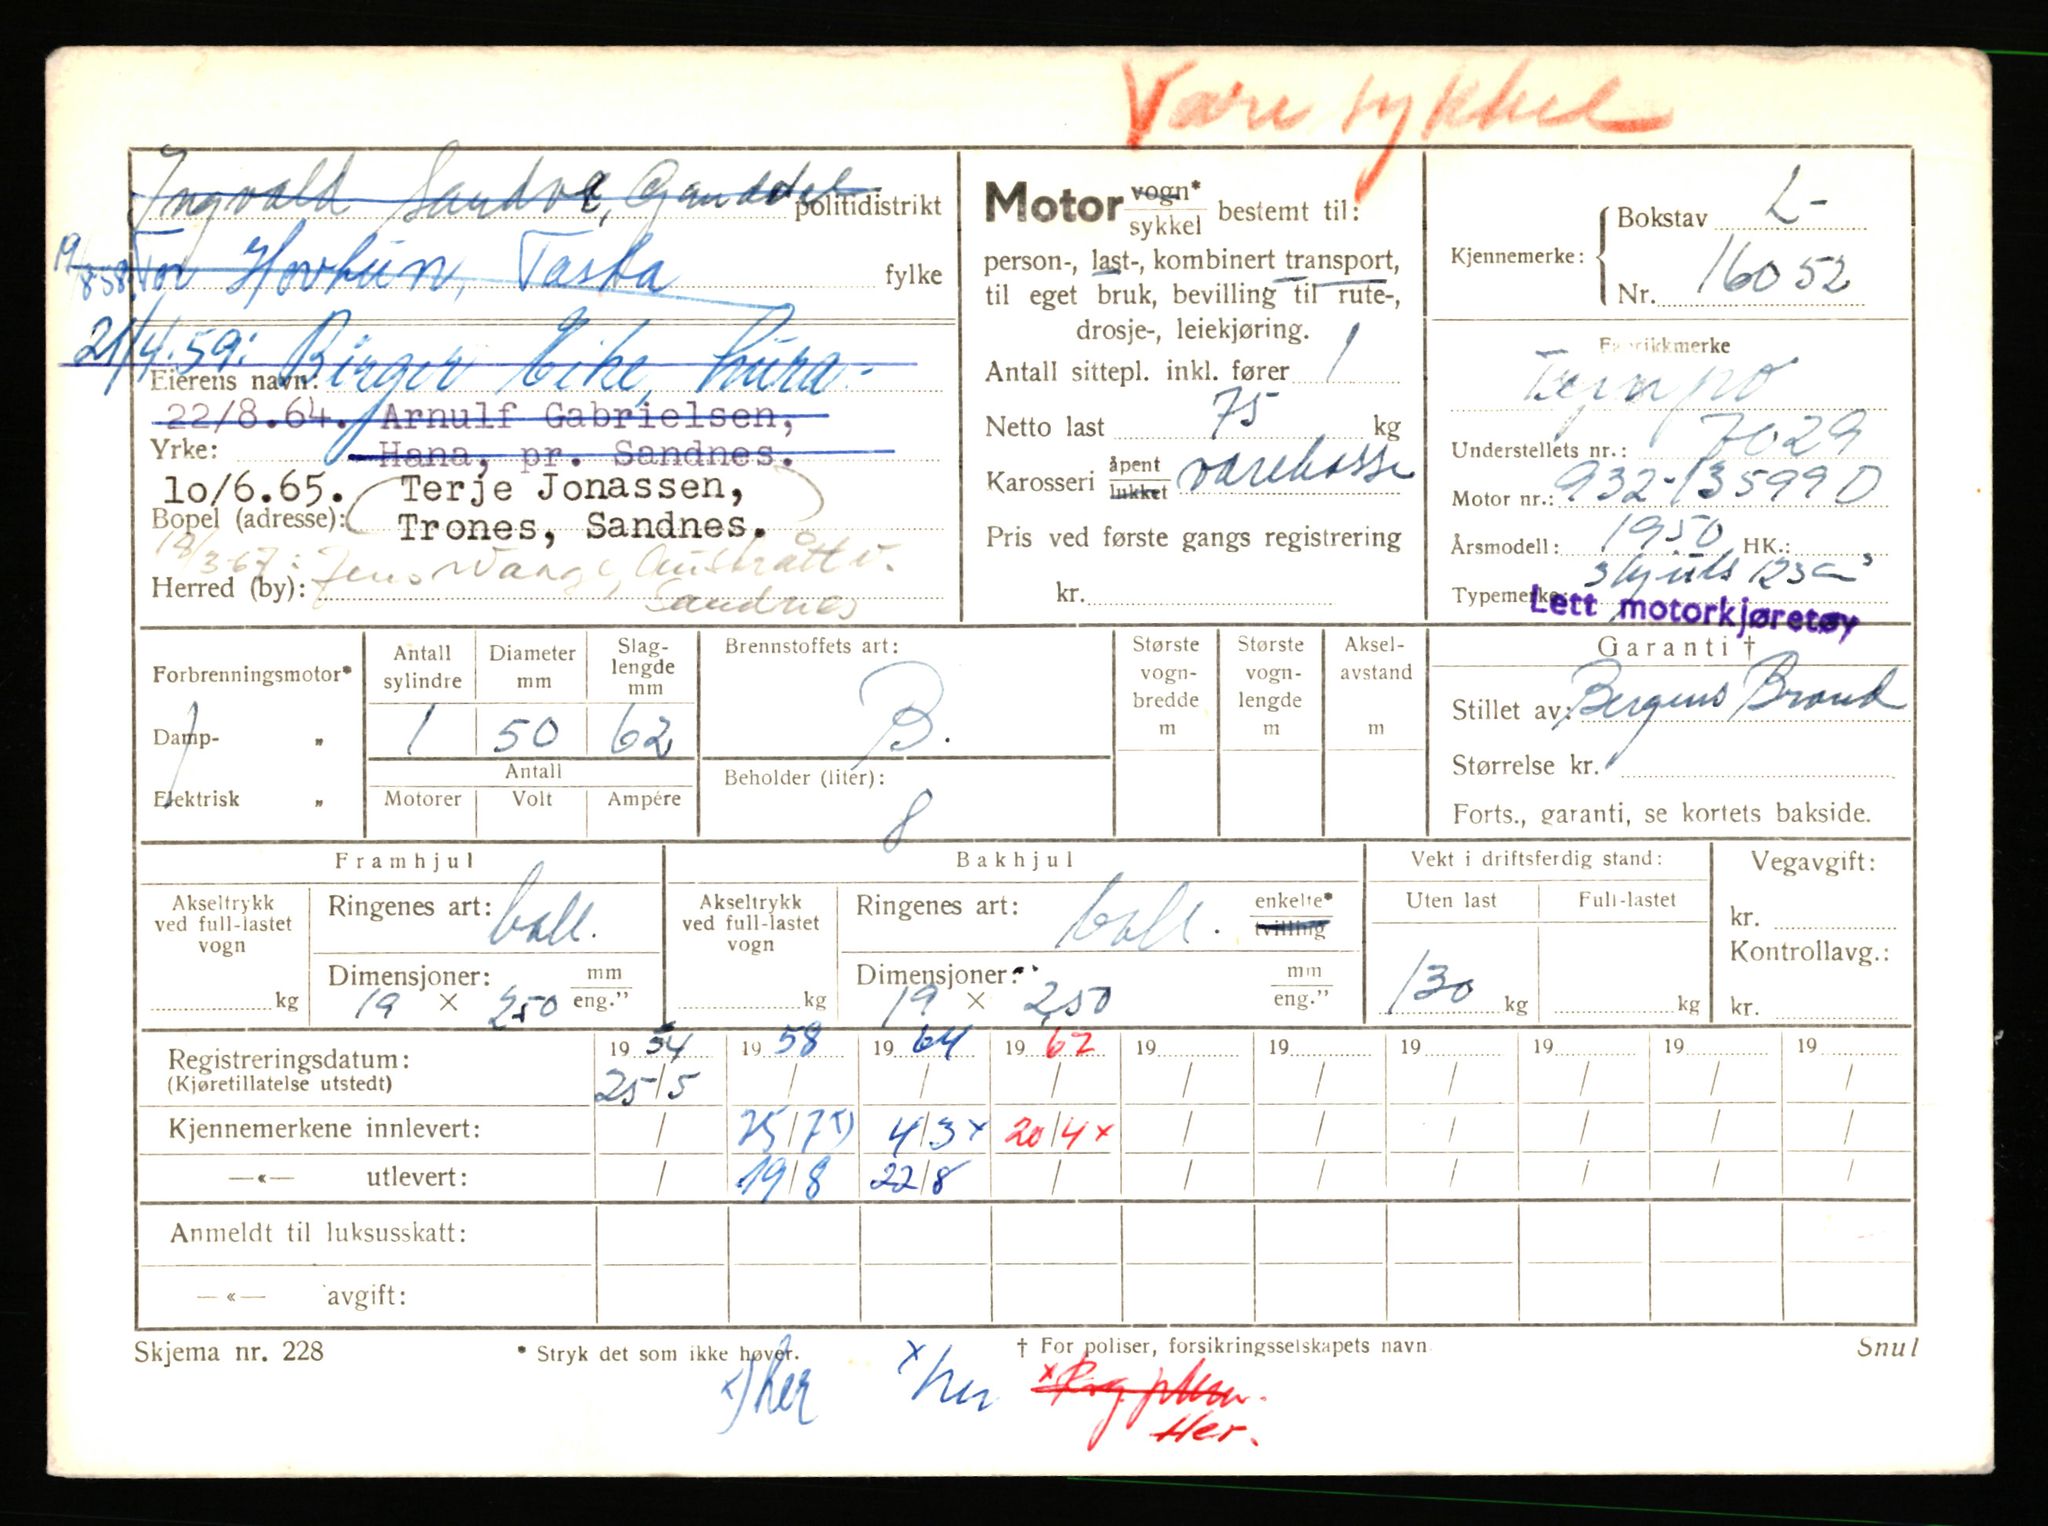 Vare sykkel
Ingvald Sandve, Ganddal politidistrikt
19/8.58. Tor Hovbün, Tasta fylke
21/4.59: Birger Eike, Lura.
Eierens navn:
22/8.64. Arnulf Gabrielsen,
Yrke: Hana, pr. Sandnes.
10/6.65. Terje Jonassen,
Bopel (adresse): Trones, Sandnes.
18/3-67: Jens Wang, Austrått v.
Herred (by): Sandnes
Motor vogn* sykkel bestemt til:
person-, last-, kombinert transport,
til eget bruk, bevilling til rute-,
drosje-, leiekjøring.
Antall sittepl. inkl. fører 1
Netto last 75 kg
Karosseri åpent lukket varekasse
Pris ved første gangs registrering
kr.
Kjennemerke: Bokstav L-
Nr. 16052
Fabrikkmerke
Tempo
Understellets nr.: 7029
Motor nr.: 932-135990
Årsmodell: 1950 HK.:
3 hjuls 123 cm³
Typemerke:
Lett motorkjøretøy
Forbrenningsmotor*
Damp- „
Elektrisk „
Antall sylindre 1
Diameter mm 50
Slaglengde mm 62
Antall
Motorer Volt Ampére
Brennstoffets art:
B.
Beholder (liter):
8
Største vognbredde m
Største vognlengde m
Akselavstand m
Garanti †
Stillet av: Bergens Brand
Størrelse kr.
Forts., garanti, se kortets bakside.
Framhjul
Akseltrykk ved full-lastet vogn kg
Ringenes art: ball.
Dimensjoner: mm eng."
19 × 250
Bakhjul
Akseltrykk ved full-lastet vogn kg
Ringenes art: ball. enkelte* tvilling
Dimensjoner: mm eng."
19 × 2,50
Vekt i driftsferdig stand:
Uten last Full-lastet
130 kg kg
Vegavgift:
kr.
Kontrollavg.:
kr.
Registreringsdatum: 19 54 19 58 19 64 19 67 19 19 19 19 19 19
(Kjøretillatelse utstedt) 25/5 / / / / / / / / /
Kjennemerkene innlevert: / 25/7 x) 4/3 x 20/4 x / / / / / /
—«— utlevert: / 19/8 22/8 / / / / / / /
Anmeldt til luksusskatt:
—«— avgift:
Skjema nr. 228 * Stryk det som ikke høver. † For poliser, forsikringsselskapets navn Snul
x) her x her x
Her.